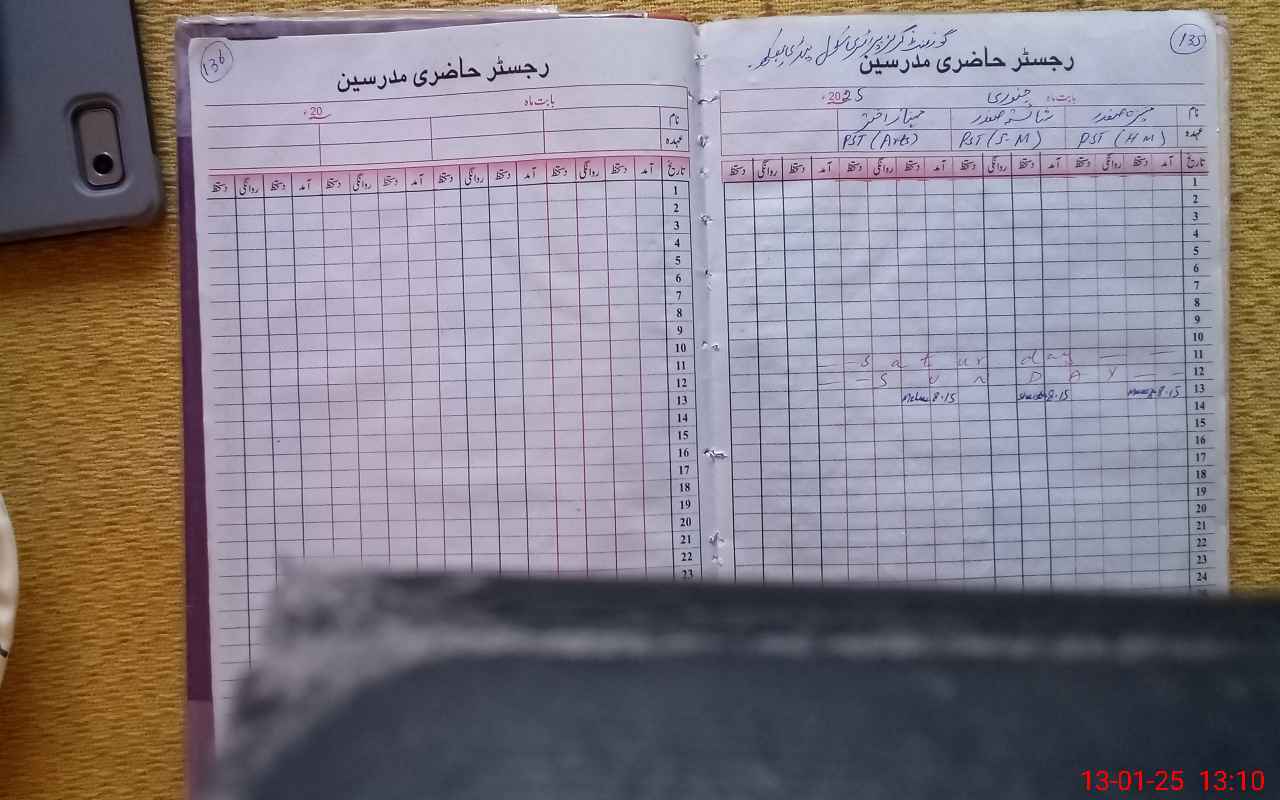 135
گورنمنٹ گرلز پرائمری سکول
رجسٹر حاضری مدرسین
بابت ماہ جنوری 2025ء
نام شائستہ صفدر مہناز اختر
عہدہ PST (H M) PST (S-M) PST (Arts)
تاریخ آمد دستخط روانگی دستخط آمد دستخط روانگی دستخط آمد دستخط روانگی دستخط آمد دستخط روانگی دستخط
1
2
3
4
5
6
7
8
9
10
11 - - S a t ur day - -
12 - - S U N D A Y - -
13 8.15 8.15 8.15
14
15
16
17
18
19
20
21
22
23
24
136
رجسٹر حاضری مدرسین
بابت ماہ 20ء
نام
عہدہ
تاریخ آمد دستخط روانگی دستخط آمد دستخط روانگی دستخط آمد دستخط روانگی دستخط آمد دستخط روانگی دستخط
1
2
3
4
5
6
7
8
9
10
11
12
13
14
15
16
17
18
19
20
21
22
23
13-01-25 13:10